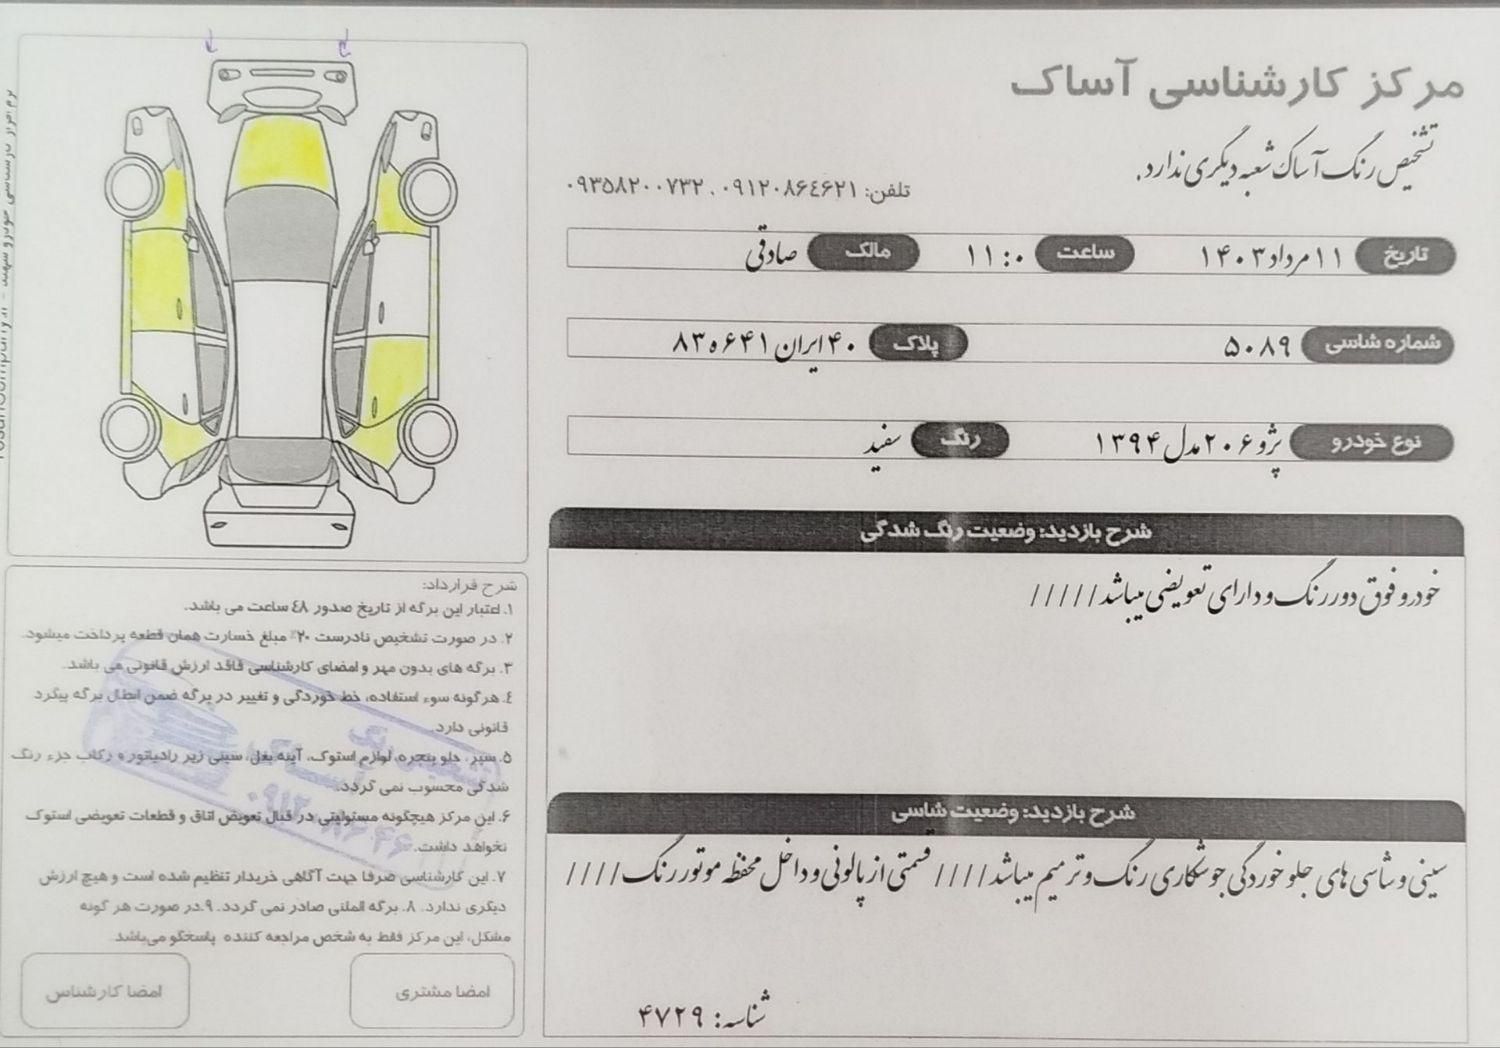 مرکز کارشناسی آساک
تشخیص رنگ آساک شعبه دیگری ندارد.
تلفن: ۰۹۱۲۰۸۶۴۶۲۱ . ۰۹۳۵۸۲۰۰۷۳۲
تاریخ ۱۱ مرداد ۱۴۰۳ ساعت ۱۱:۰ مالک صادقی
شماره شاسی ۵۰۸۹ پلاک ۴۰ ایران ۶۴۱ ه ۸۳
نوع خودرو پژو ۲۰۶ مدل ۱۳۹۴ رنگ سفید
شرح بازدید: وضعیت رنگ شدگی
خودرو فوق دور رنگ و دارای تعویضی میباشد /////
شرح بازدید: وضعیت شاسی
سینی و شاسی های جلو خوردگی جوشکاری رنگ و ترمیم میباشد //// قسمتی از پالونی و داخل محفظه موتور رنگ ////
شناسه: ۴۷۲۹
شرح قرارداد:
۱. اعتبار این برگه از تاریخ صدور ٤٨ ساعت می باشد.
۲. در صورت تشخیص نادرست ۲۰٪ مبلغ خسارت همان قطعه پرداخت میشود.
۳. برگه های بدون مهر و امضای کارشناسی فاقد ارزش قانونی می باشد.
٤. هرگونه سوء استفاده، خط خوردگی و تغییر در برگه ضمن ابطال برگه پیگرد
قانونی دارد.
۵. سپر، جلو پنجره، لوازم استوک، آینه بغل، سینی زیر رادیاتور و رکاب جزء رنگ
شدگی محسوب نمی گردد.
۶. این مرکز هیچگونه مسئولیتی در قبال تعویض اتاق و قطعات تعویضی استوک
نخواهد داشت.
۷. این کارشناسی صرفا جهت آگاهی خریدار تنظیم شده است و هیچ ارزش
دیگری ندارد. ۸. برگه المثنی صادر نمی گردد. ۹. در صورت هر گونه
مشکل، این مرکز فقط به شخص مراجعه کننده پاسخگو می‌باشد.
امضا مشتری
امضا کارشناس